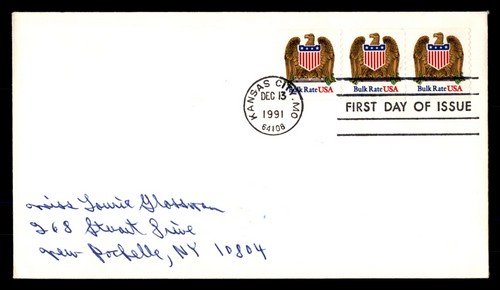 Bulk Rate USA Bulk Rate USA Bulk Rate USA
KANSAS CITY, MO
DEC 13
1991
64108
FIRST DAY OF ISSUE
Miss Laurie Glassman
268 Stuart Drive
New Rochelle, NY 10804